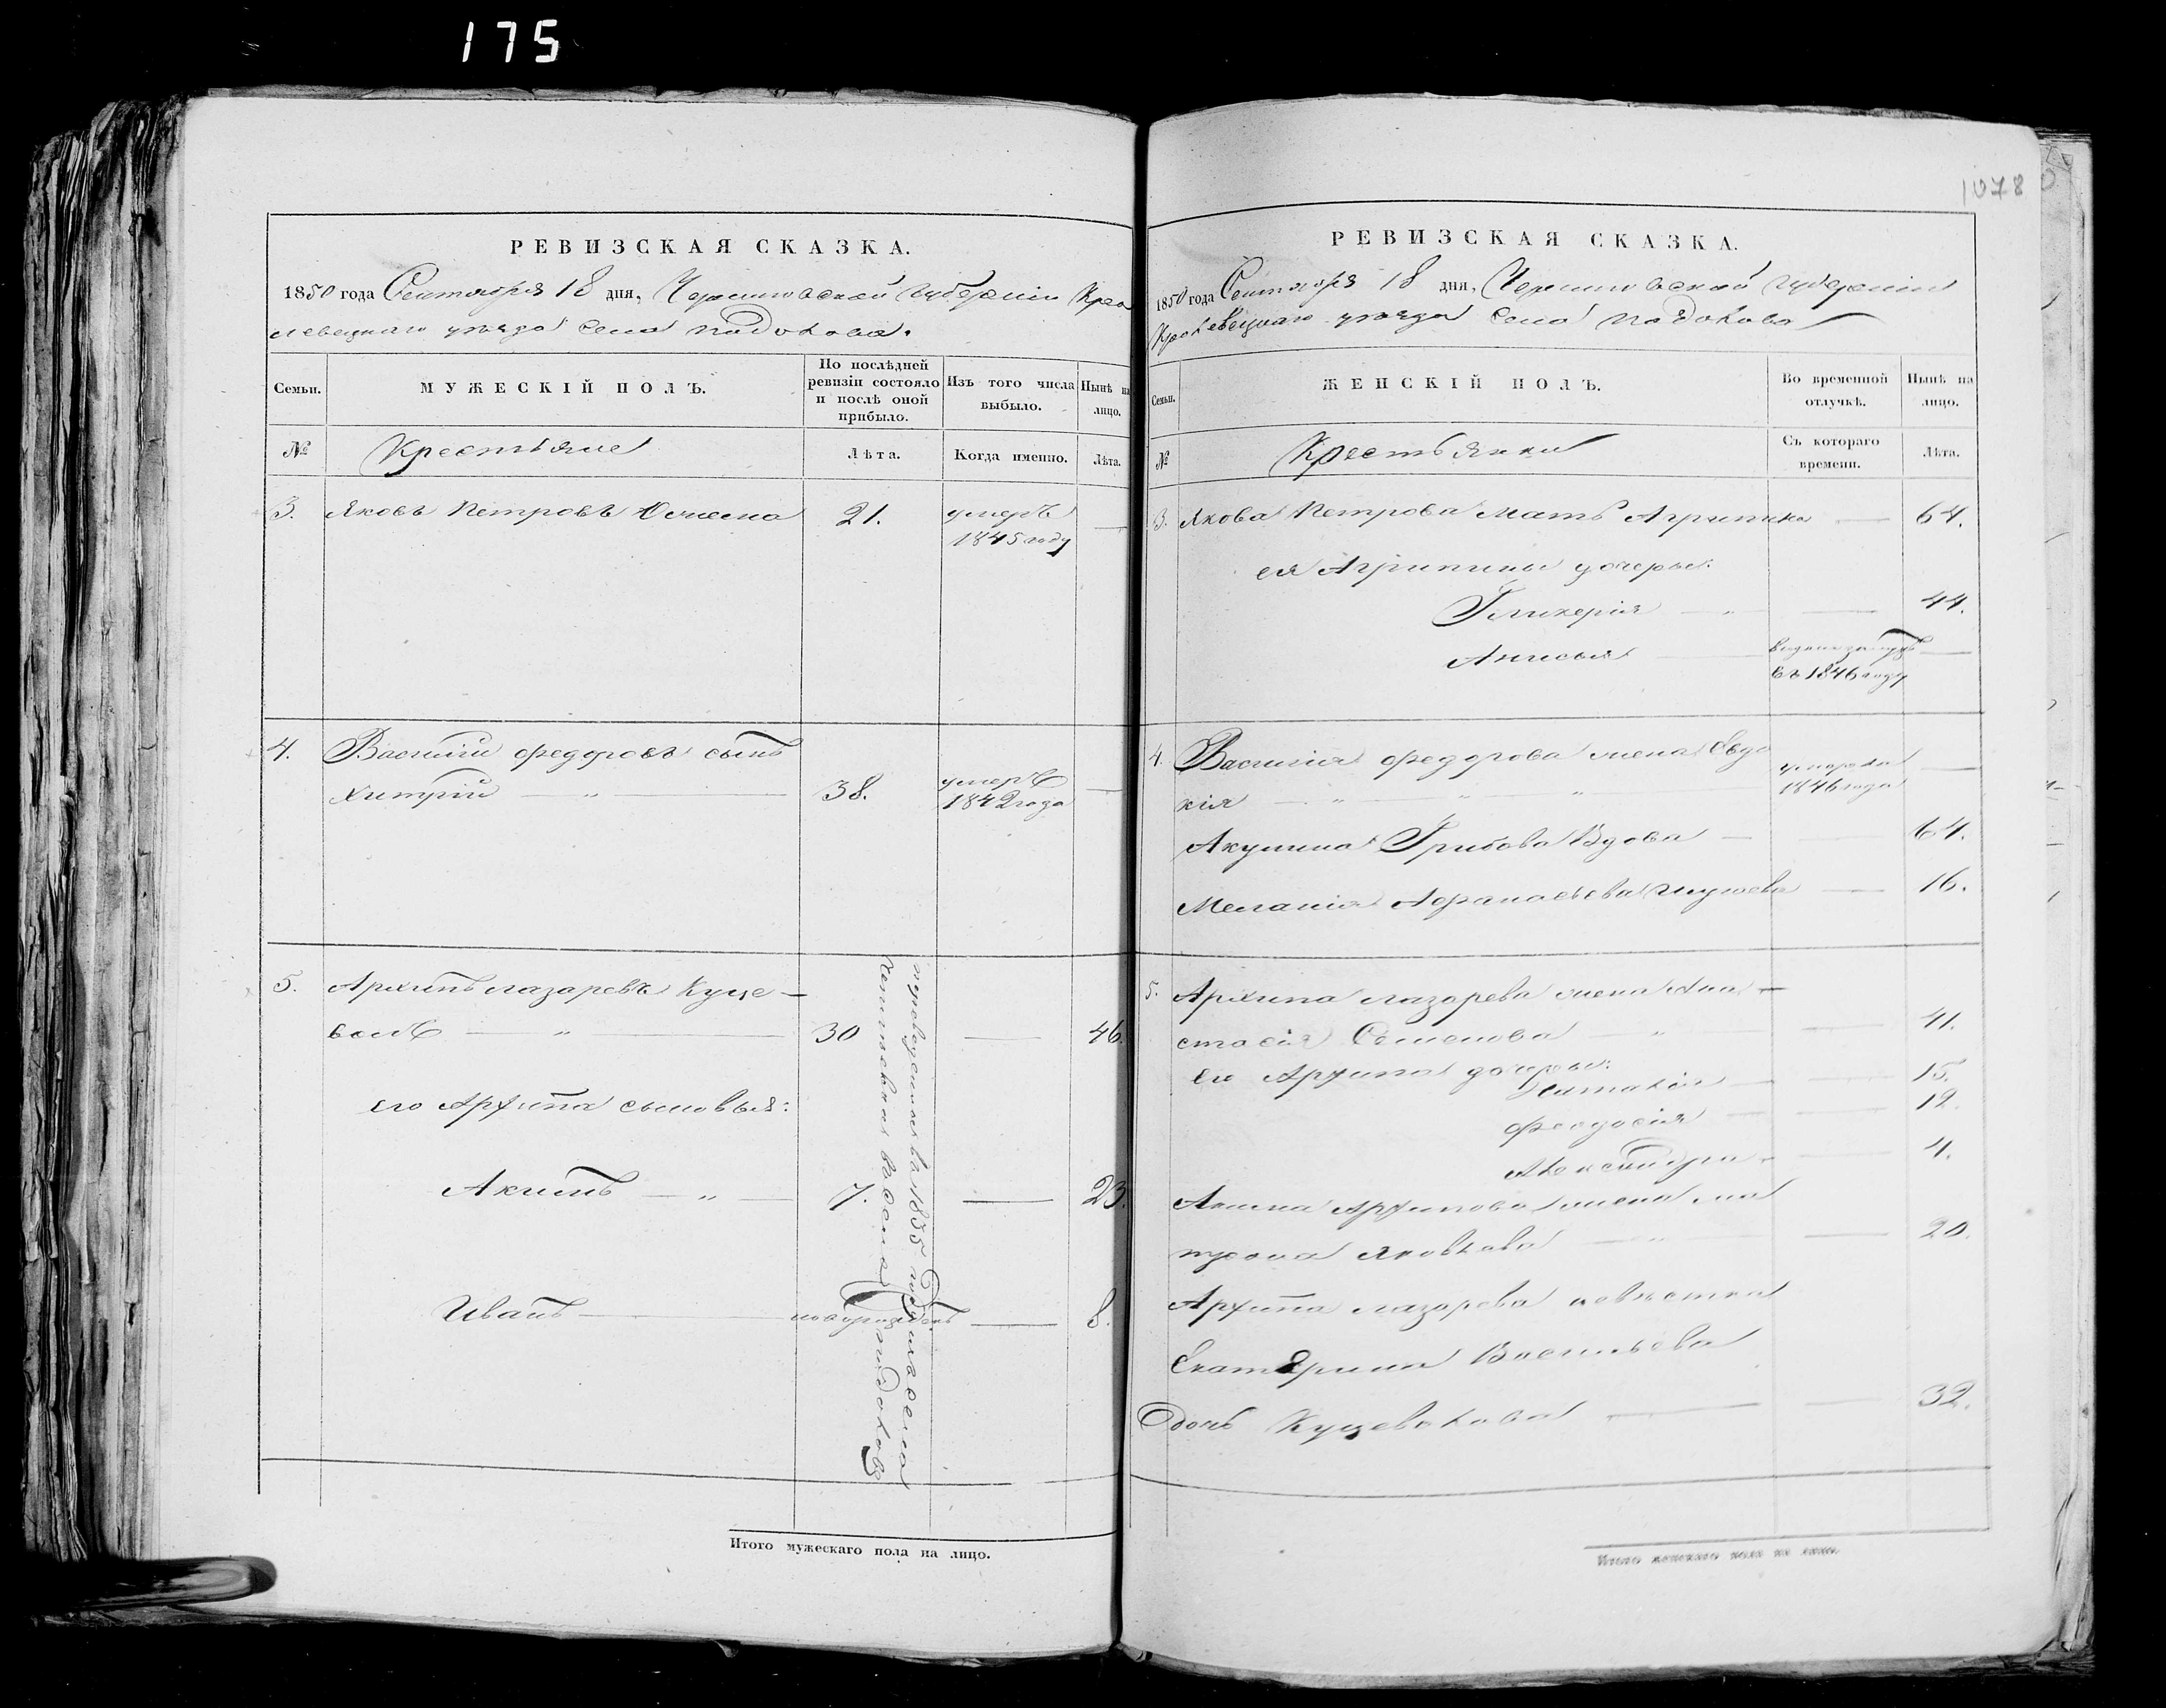 175
РЕВИЗСКАЯ СКАЗКА.
1850 года Сентября 18 дня, Черниговской Губернии Кро
левецкаго уезда Села Подолова.
Семьи.
МУЖЕСКІЙ ПОЛЪ.
По послѣдней ревизіи состояло и послѣ оной прибыло.
Изъ того числа выбыло.
Нынѣ на лицо.
№
Крестьяне
Лѣта.
Когда именно.
Лѣта.
3. Яковъ Петровъ 21. умеръ
1845 году
4. Василій Федоровъ сынъ
Хитрій 38. умеръ
1842 года
5. Архипъ Лазаревъ Куце-
волъ 30 46.
его Архипа сыновья:
Акимъ 7. 23.
Иванъ новорожденъ 8.
переведенная въ 1835 году изъ села
въ село Подолово
Итого мужескаго пола на лицо.
1078
РЕВИЗСКАЯ СКАЗКА.
1850 года Сентября 18 дня, Черниговской Губернии
Кролевецкаго уезда Села Подолова
Семьи.
ЖЕНСКІЙ ПОЛЪ.
Во временной отлучкѣ.
Нынѣ на лицо.
№
Крестьянки
Съ котораго времени.
Лѣта.
3. Якова Петрова мать Агрипина 64.
ея Агрипины дочери:
Гликерія 44.
Анисья выдана замужъ
въ 1846 году
4. Василія Федорова жена Евдо
кія умерла
1846 года
Акулина Грибова Вдова 64.
Меланія 16.
5. Архипа Лазарева жена Ана-
стасія Семенова 41.
Его Архипа дочери:
Наталія 15.
Феодосія 12.
Александра 4.
Акима Архипова жена Ма
трона Яковлева 20.
Архипа Лазарева невестка
Екатерина Васильева
дочь Куцеволова 32.
Итого женскаго пола на лицо.